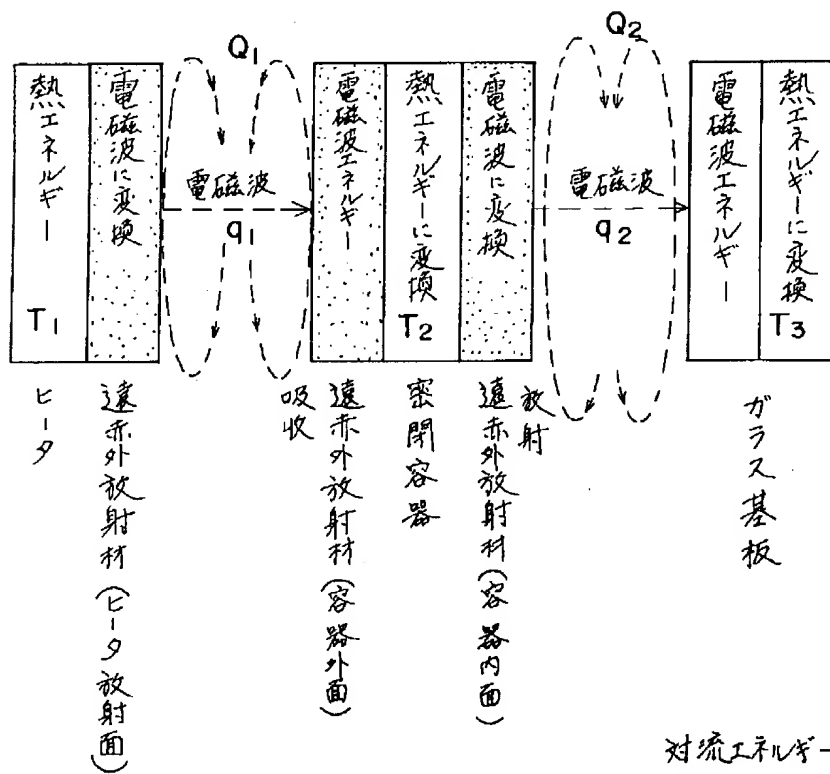 Q1
Q2
熱エネルギー
T1
電磁波に変換
電磁波
q1
電磁波エネルギー
熱エネルギーに変換
T2
電磁波に変換
電磁波
q2
電磁波エネルギー
熱エネルギーに変換
T3
ヒータ
遠赤外放射材(ヒータ放射面)
吸収
遠赤外放射材(容器外面)
密閉容器
遠赤外放射材(容器内面)
放射
ガラス基板
対流エネルギー